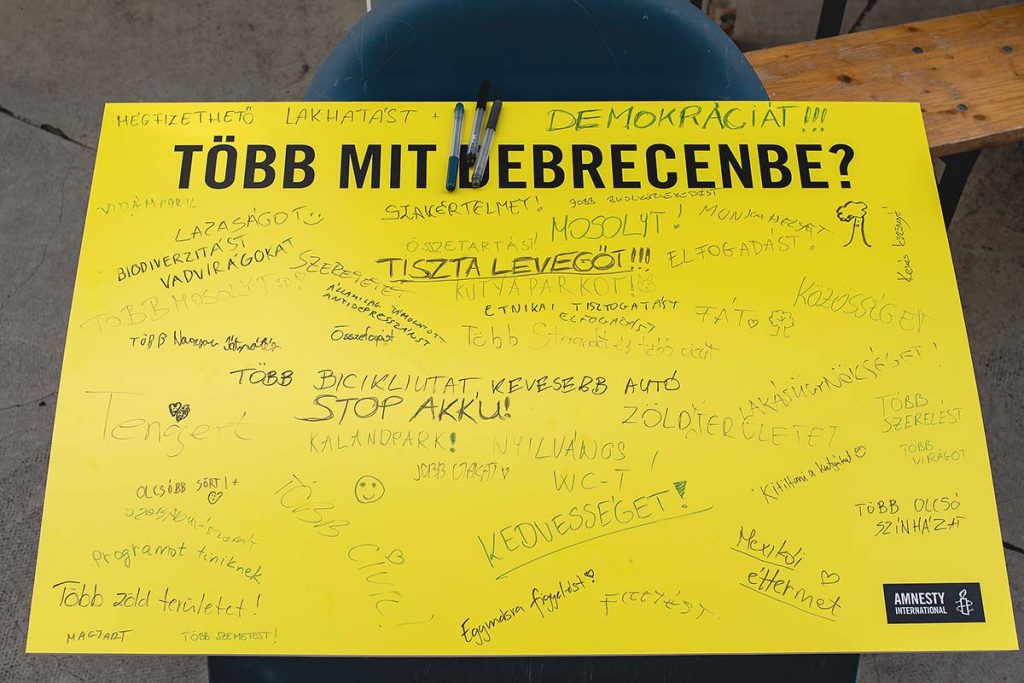 MEGFIZETHETŐ LAKHATÁST +
DEMOKRÁCIÁT!!!
TÖBB MIT DEBRECENBE?
VIDÁMPARK
LAZASÁGOT
SZAKÉRTELMET!
JOBB
MOSOLYT!
MUNKAHELYET
BIODIVERZITÁST
VADVIRÁGOKAT
ÖSSZETARTÁST!
ELFOGADÁST!
SZERETETET
TISZTA LEVEGŐT!!!
KUTYAPARKOT!
TÖBB MOSOLYT
ÁLLAMILAG TÁMOGATOTT
ANTIDEPRESSZÁNST
ETNIKAI TISZTOGATÁST
ELFOGADÁST
FÁT
KÖZÖSSÉGET
TÖBB
Összefogást
Több Strandot és több cicát
TÖBB BICIKLIUTAT, KEVESEBB AUTÓ
STOP AKKU!
Tengert
ZÖLDTERÜLETET
LAKÁSÜGYNÖKSÉGET!
TÖBB
SZERELÉST
KALANDPARK!
NYILVÁNOS
WC-T!
TÖBB
VIRÁGOT
JOBB UTAKAT
OLCSÓBB SÖRT! +
Kitiltani a kutyákat
TÖBB OLCSÓ
SZÍNHÁZAT
KEDVESSÉGET!
TÖBB
CIVIL!
programot tiniknek
Mexikói
éttermet
Több zöld területet!
Egymásra figyelést
MAGYART
TÖBB SZEMETEST!
AMNESTY
INTERNATIONAL